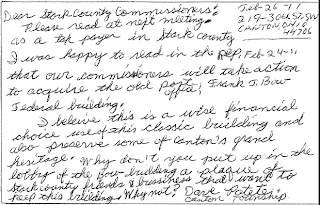 Dear Stark County Commissioners:
Feb-26-11
Please read at next meeting.
219-30th St. SW
as a tax payer in Stark county
CANTON, OHIO
44706
I was happy to read in the Rep, Feb-24-11
that our commissioners will take action
to acquire the old post office, Frank T. Bow
Federal building.
I believe this is a wise financial
choice use of this classic building and
also preserve some of Canton's grand
heritage. Why don't you put up in the
lobby of the Bow building a plaque of
Stark county friends & bussiness that want to
keep this building. Why not? Dave
Canton Township